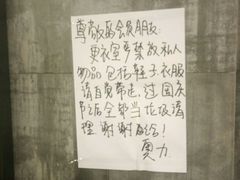 尊敬的会员朋友:
更衣室严禁放私人
物品包括鞋子衣服
请自觉带走,过国庆
节之后全部当垃圾清
理 谢谢配合!
勇力